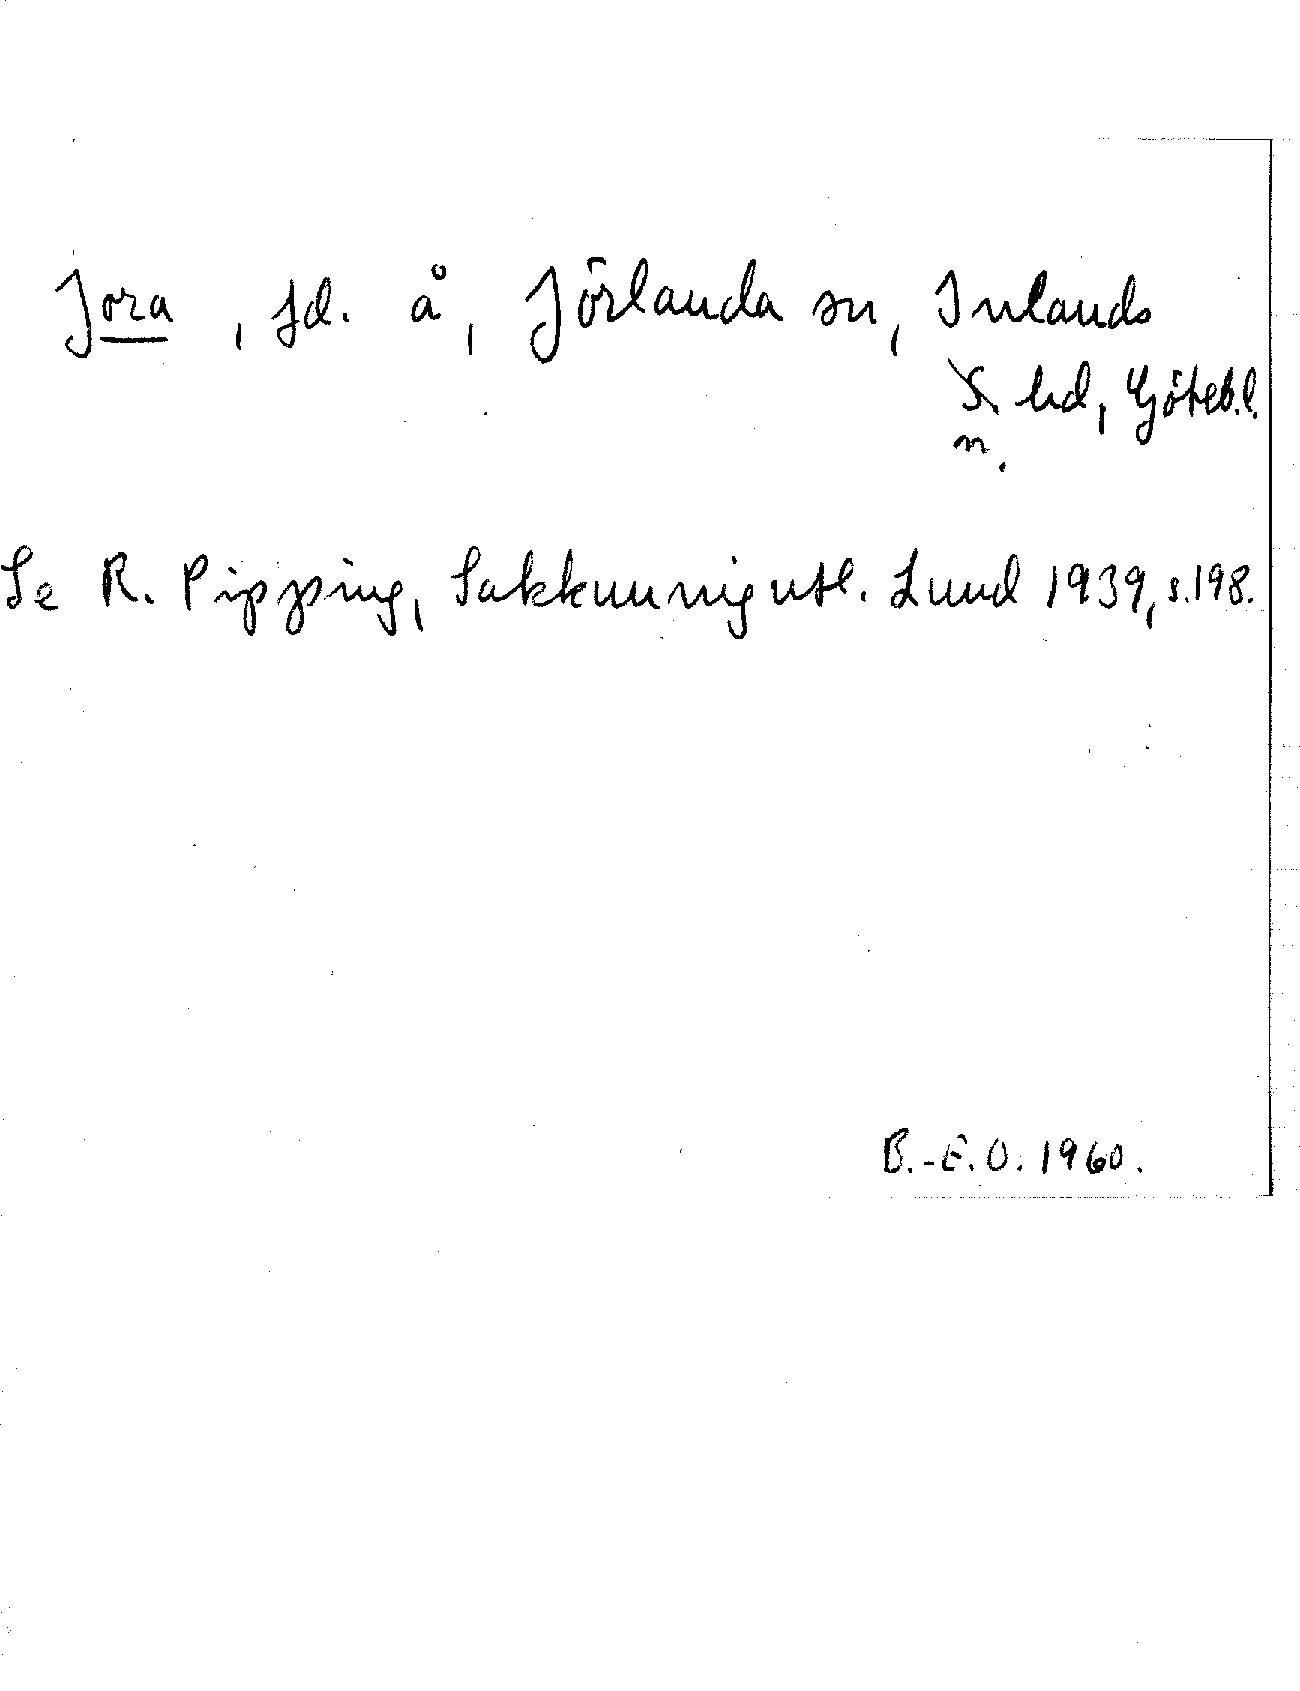 Jora, fd. å, Jörlanda sn, Inlands
S. hd, Göteb.l.
n.
Se R. Pipping, Sakkunnigutl. Lund 1939, s.198.
B.-E.O. 1960.